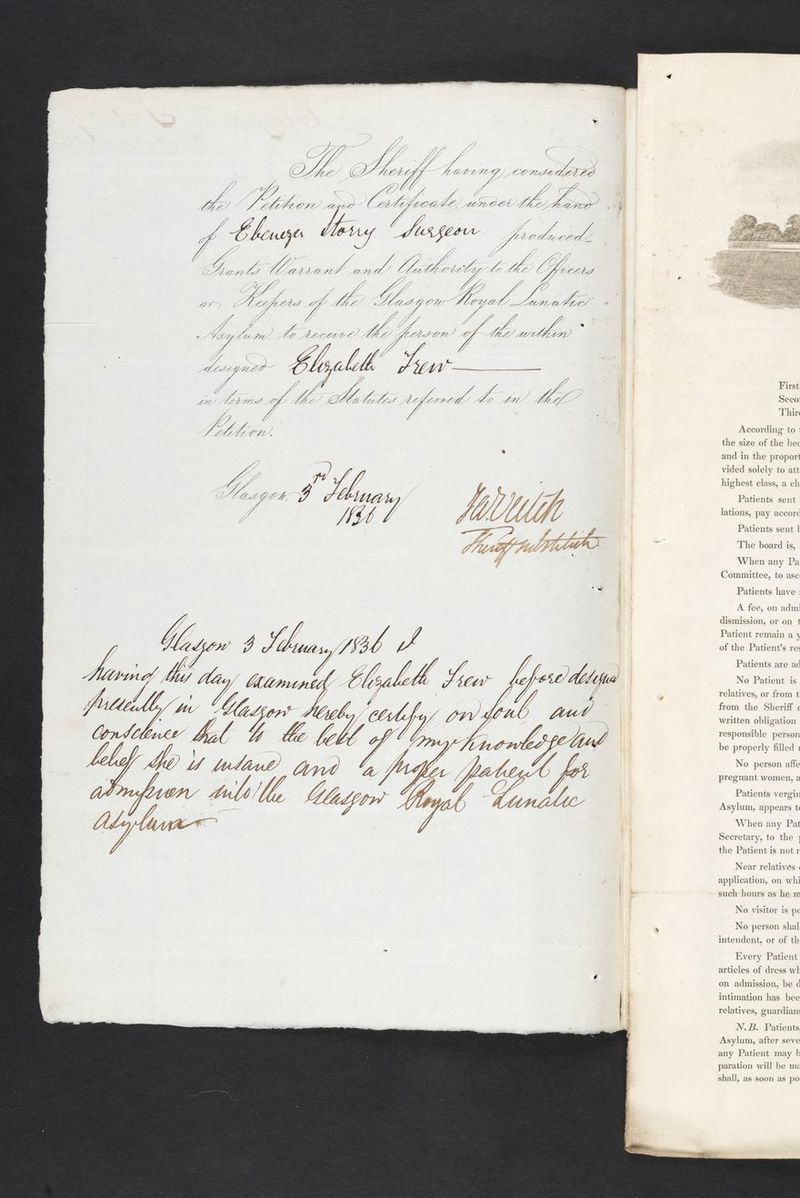 The Sheriff having considered
the Petition and Certificate under the hand
of Ebenezer Storry Surgeon produced
Grants Warrant and Authority to the Officers
or Keepers of the Glasgow Royal Lunatic
Asylum to receive the person of the within
designed Elizabeth Trew
in terms of the Statutes referred to in the
Petition.
Glasgow 3rd February
1836
Ja. Veitch
Sheriff substitute
Glasgow 3 February 1836 I
having this day examined Elizabeth Trew before designed
presently in Glasgow hereby certify on soul and
conscience that to the best of my knowledge and
belief she is insane and a proper patient for
admission into the Glasgow Royal Lunatic
Asylum
First
Thir
According to
the size of the bed
and in the proport
vided solely to att
highest class, a ch
Patients sent
lations, pay accord
Patients sent
The board is,
When any Pa
Committee, to asc
Patients have
A fee, on admi
dismission, or on
Patient remain a y
of the Patient's res
Patients are ad
No Patient is
relatives, or from
from the Sheriff
written obligation
responsible person
be properly filled
No person affe
pregnant women, a
Patients vergin
Asylum, appears to
When any Pat
Secretary, to the
the Patient is not r
Near relatives
application, on whi
such hours as he m
No visitor is pe
No person shal
intendent, or of th
Every Patient
articles of dress wh
on admission, be d
intimation has bee
relatives, guardians
N.B. Patients
Asylum, after seve
any Patient may b
paration will be ma
shall, as soon as po